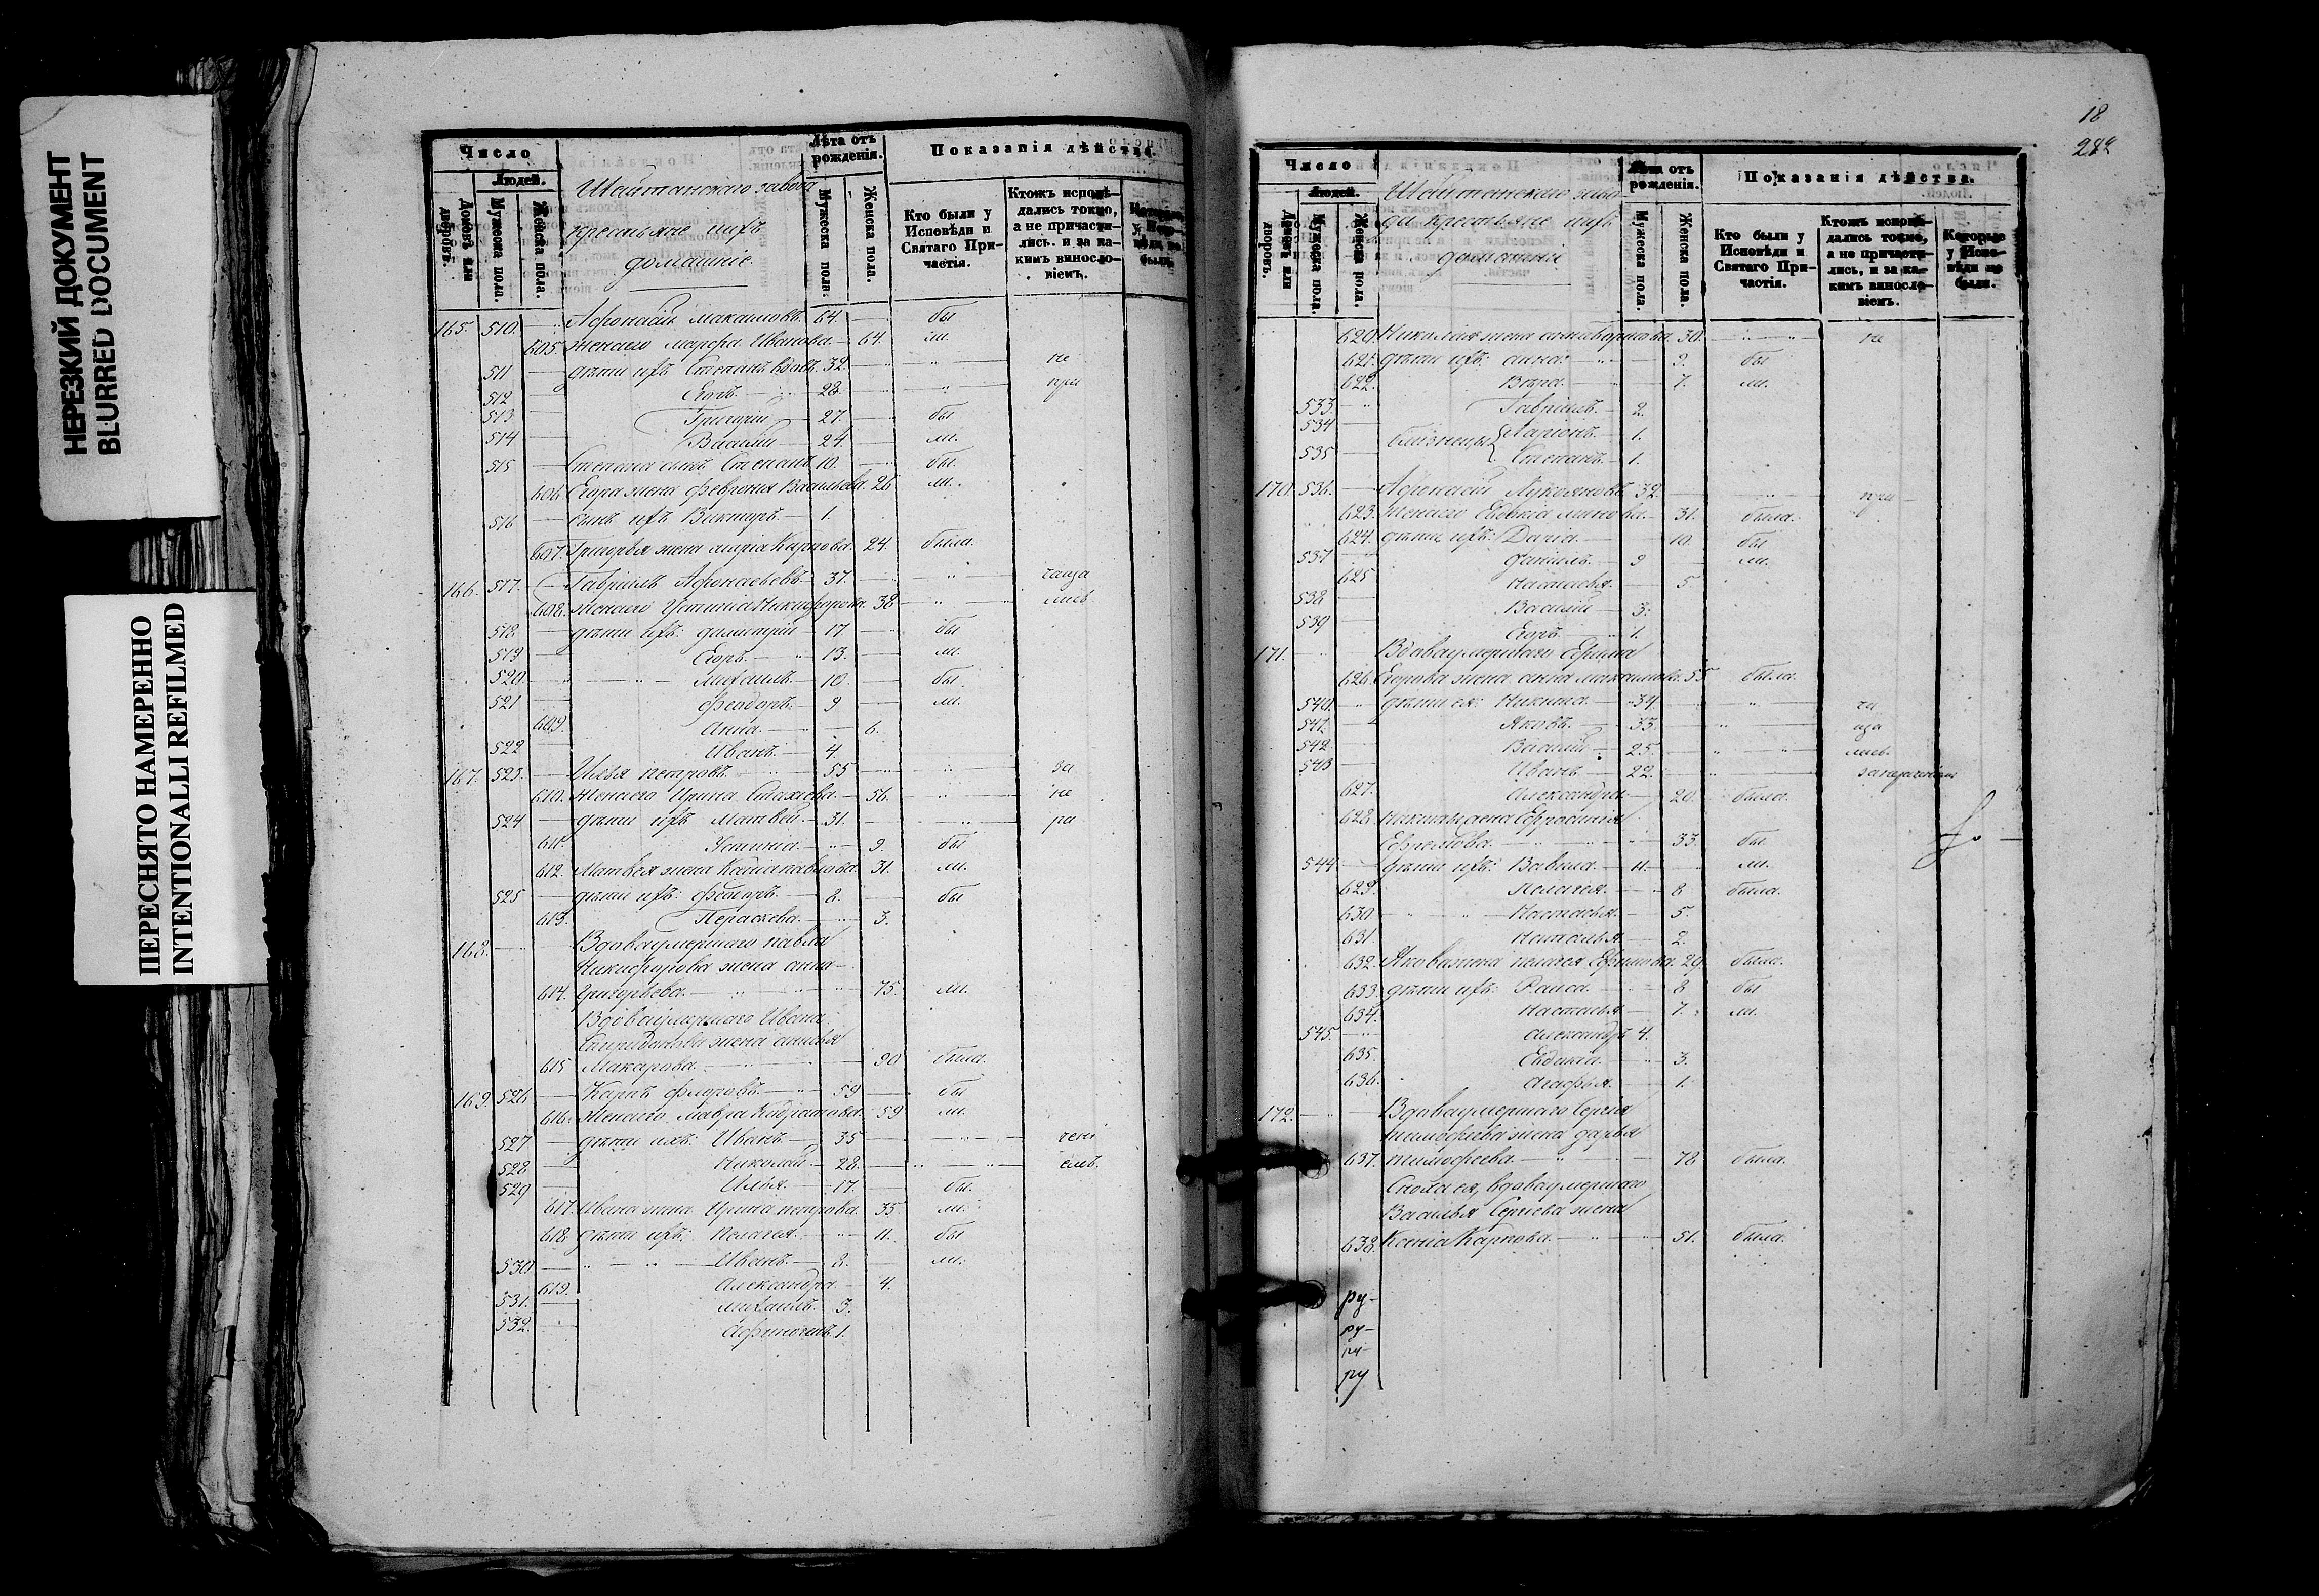 НЕРЕЗКИЙ ДОКУМЕНТ
BLURRED DOCUMENT
ПЕРЕСНЯТО НАМЕРЕННО
INTENTIONALLI REFILMED
Число
Людей.
Домовъ или дворовъ.
Мужеска пола.
Женска пола.
Шайтанскаго завода
крестьяне ихъ
домашніе.
Лѣта отъ рожденія.
Мужеска пола.
Женска пола.
Показанія дѣйства.
Кто были у Исповѣди и Святаго Причастія.
Ктожъ исповѣдались токмо, а не причастились. и за какимъ винословіемъ.
Которые у Исповѣди не были.
165. 510. Афонасій Максимовъ. 64. бы
605. Жена его Марфа Иванова. 64. ли.
511 дѣти ихъ Степанъ вдовъ. 32. не
512 Егоръ. 28. при
513 Григорій 27. бы
514 Василій 24. ли.
515 Степана сынъ Степанъ 10. бы
606. Егора жена Феврония Васильева. 26 ли.
516 сынъ ихъ Викторъ. 1.
607. Григорья жена Марія Карпова. 24. была.
166. 517. Гавріилъ Афонасьевъ. 37. чаща
608. Жена его Устинія Никифорова. 38 лись
518 дѣти ихъ: 17. бы
519 Егоръ. 13. ли.
520 Михаилъ. 10. бы
521 Феодоръ. 9 ли.
609. Анна. 6.
522 Иванъ. 4.
167. 523. Илья Петровъ. 55 за
610. Жена его Ирина Стахіева. 56. не
524 дѣти ихъ Матвей. 31. ра
611. Устина. 9. бы
612. Матвея жена Павлова. 31. ли.
525 дѣти ихъ: Ѳеодоръ. 8. бы
613. Параскева. 3.
168. Вдова умершаго Павла
Никифорова жена Анна
614. Григорьева. 75. ли.
Вдова умершаго Ивана
Спиридонова жена
615 Макарова. 90 была.
169. 526. Карпъ Флоровъ. 59 бы
616. Жена его Мавра Кодратова. 59 ли.
527 дѣти ихъ: Иванъ 35
528 Николай. 28.
529 Илья. 17. бы.
617. Ивана жена Ирина Петрова. 35 ли.
618. дѣти ихъ: Пелагея. 11. бы
530 Иванъ. 8. ли.
619. Александра. 4.
531. Михаилъ. 3.
532. Афиногенъ. 1.
18
282
Число
Людей.
Домовъ или дворовъ.
Мужеска пола.
Женска пола.
Шайтанскаго заво
да крестьяне ихъ
домашніе
Лѣта отъ рожденія.
Мужеска пола.
Женска пола.
Показанія дѣйства.
Кто были у Исповѣди и Святаго Причастія.
Ктожъ исповѣдались токмо, а не причастились, и за какимъ винословіемъ.
Которые у Исповѣди не были.
620. Николая жена 30. не
621. дѣти ихъ: Анна. 9. бы
622. Вѣра. 7. ли.
533. Гавріилъ. 2.
534 близнецы Ларіонъ. 1.
535 Степанъ. 1.
170. 536. Афонасій Лукояновъ 32. при
623. Жена его Евдокіа 31. была.
624. дѣти ихъ: Дарья. 10. бы
537 Даніилъ. 9 ли.
625 Настасья. 5.
538 Василій 3.
539 Егоръ. 1.
171. Вдова умершаго Ефима
626. Егорова жена Анна Максимова. 55 была.
540. дѣти ея: Никита. 34. ча
541. Яковъ. 33. ща
542. Василій 25. лись.
543 Иванъ 22.
627. Александра. 20. была.
628. Никиты жена Ефросинія
Ефремова. 33. бы
544 дѣти ихъ: Вавила. 11. ли.
629. Пелагея. 8 была.
630 Настасья. 5.
631. Наталья. 2.
632. Якова жена Пелагея Ефимова. 29. была.
633. дѣти ихъ: Раиса. 8 бы
634. Настасья. 7. ли.
545. Александръ 4.
635. Евдокія. 3.
636. Агафья. 1.
172. Вдова умершаго Сергѣя
Тимофеева жена Дарья
637. Тимофеева. 78 была.
Сноха ея, вдова умершаго
Василья Сергѣева жена
638. Ксенія Карпова. 51. была.
ру-
ру-
ру